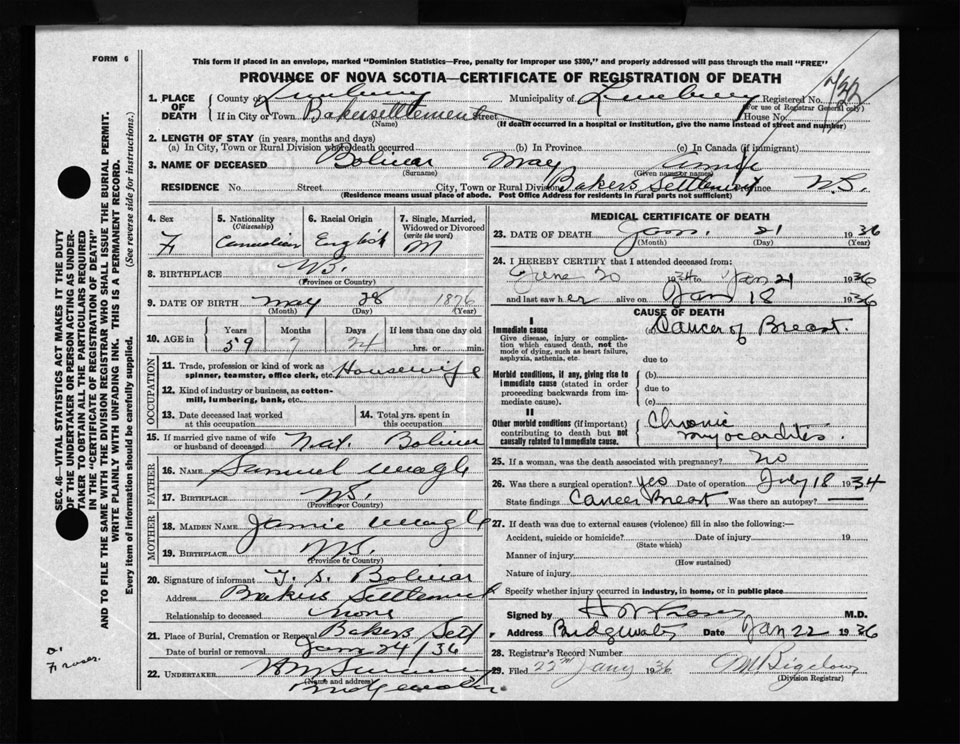 FORM 6
This form if placed in an envelope, marked "Dominion Statistics—Free, penalty for improper use $300," and properly addressed will pass through the mail "FREE"
PROVINCE OF NOVA SCOTIA—CERTIFICATE OF REGISTRATION OF DEATH
SEC. 46—VITAL STATISTICS ACT MAKES IT THE DUTY
OF THE UNDERTAKER OR PERSON ACTING AS UNDER-
TAKER TO OBTAIN ALL THE PARTICULARS REQUIRED
IN THE "CERTIFICATE OF REGISTRATION OF DEATH"
AND TO FILE THE SAME WITH THE DIVISION REGISTRAR WHO SHALL ISSUE THE BURIAL PERMIT.
WRITE PLAINLY WITH UNFADING INK. THIS IS A PERMANENT RECORD.
Every item of information should be carefully supplied. (See reverse side for instructions.)
1. PLACE OF DEATH
County of Lunenburg Municipality of Lunenburg Registered No.
(For use of Registrar General only)
If in City or Town Bakersettlement Street House No.
(Name) (If death occurred in a hospital or institution, give the name instead of street and number)
2. LENGTH OF STAY (in years, months and days)
(a) In City, Town or Rural Division where death occurred (b) In Province (c) In Canada (if immigrant)
3. NAME OF DECEASED Bolivar May Annie
(Surname) (Given name or names)
RESIDENCE No. Street City, Town or Rural Division Bakers Settlement Province N.S.
(Residence means usual place of abode. Post Office Address for residents in rural parts not sufficient)
4. Sex F
5. Nationality (Citizenship) Canadian
6. Racial Origin English
7. Single, Married, Widowed or Divorced (write the word) M
8. BIRTHPLACE N.S.
(Province or Country)
9. DATE OF BIRTH May 28 1876
(Month) (Day) (Year)
10. AGE in Years Months Days If less than one day old
59 7 24 hrs. or min.
OCCUPATION
11. Trade, profession or kind of work as spinner, teamster, office clerk, etc. Housewife
12. Kind of industry or business, as cotton-mill, lumbering, bank, etc.
13. Date deceased last worked at this occupation
14. Total yrs. spent in this occupation
15. If married give name of wife or husband of deceased Bolivar
FATHER
16. NAME Samuel
17. BIRTHPLACE N.S.
(Province or Country)
MOTHER
18. MAIDEN NAME
19. BIRTHPLACE N.S.
(Province or Country)
20. Signature of informant Bolivar
Address Bakers Settlement
Relationship to deceased none
21. Place of Burial, Cremation or Removal Bakers Sett
Date of burial or removal Jan 24/36
22. UNDERTAKER
(Name and address)
Bridgewater
Fraser.
MEDICAL CERTIFICATE OF DEATH
23. DATE OF DEATH Jan. 21 1936
(Month) (Day) (Year)
24. I HEREBY CERTIFY that I attended deceased from:
June 20 1934 to Jan 21 1936
and last saw her alive on Jan 18 1936
CAUSE OF DEATH
I
Immediate cause (a) Cancer of Breast.
Give disease, injury or complication which caused death, not the mode of dying, such as heart failure, asphyxia, asthenia, etc.
due to
Morbid conditions, if any, giving rise to immediate cause (stated in order proceeding backwards from immediate cause).
(b)
due to
(c)
II
Other morbid conditions (if important) contributing to death but not causally related to immediate cause.
Chronic
myocarditis.
25. If a woman, was the death associated with pregnancy? no
26. Was there a surgical operation? yes Date of operation July 18 1934
State findings Cancer Breast Was there an autopsy? —
27. If death was due to external causes (violence) fill in also the following:—
Accident, suicide or homicide? Date of injury 19
(State which)
Manner of injury
(How sustained)
Nature of injury
Specify whether injury occurred in industry, in home, or in public place
Signed by M.D.
Address Bridgewater Date Jan 22 1936
28. Registrar's Record Number
29. Filed 22nd Jany 1936 Bigelow
(Division Registrar)